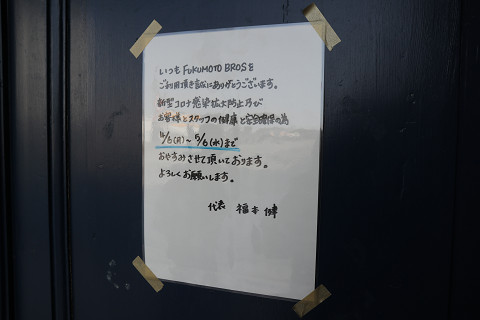 いつも FUKUMOTO BROSを
ご利用頂き誠にありがとうございます。
新型コロナ感染拡大防止及び
お客様とスタッフの健康と安全確保の為
4/6(月)~5/6(水)まで
おやすみさせて頂いております。
よろしくお願いします。
代表 福本 健